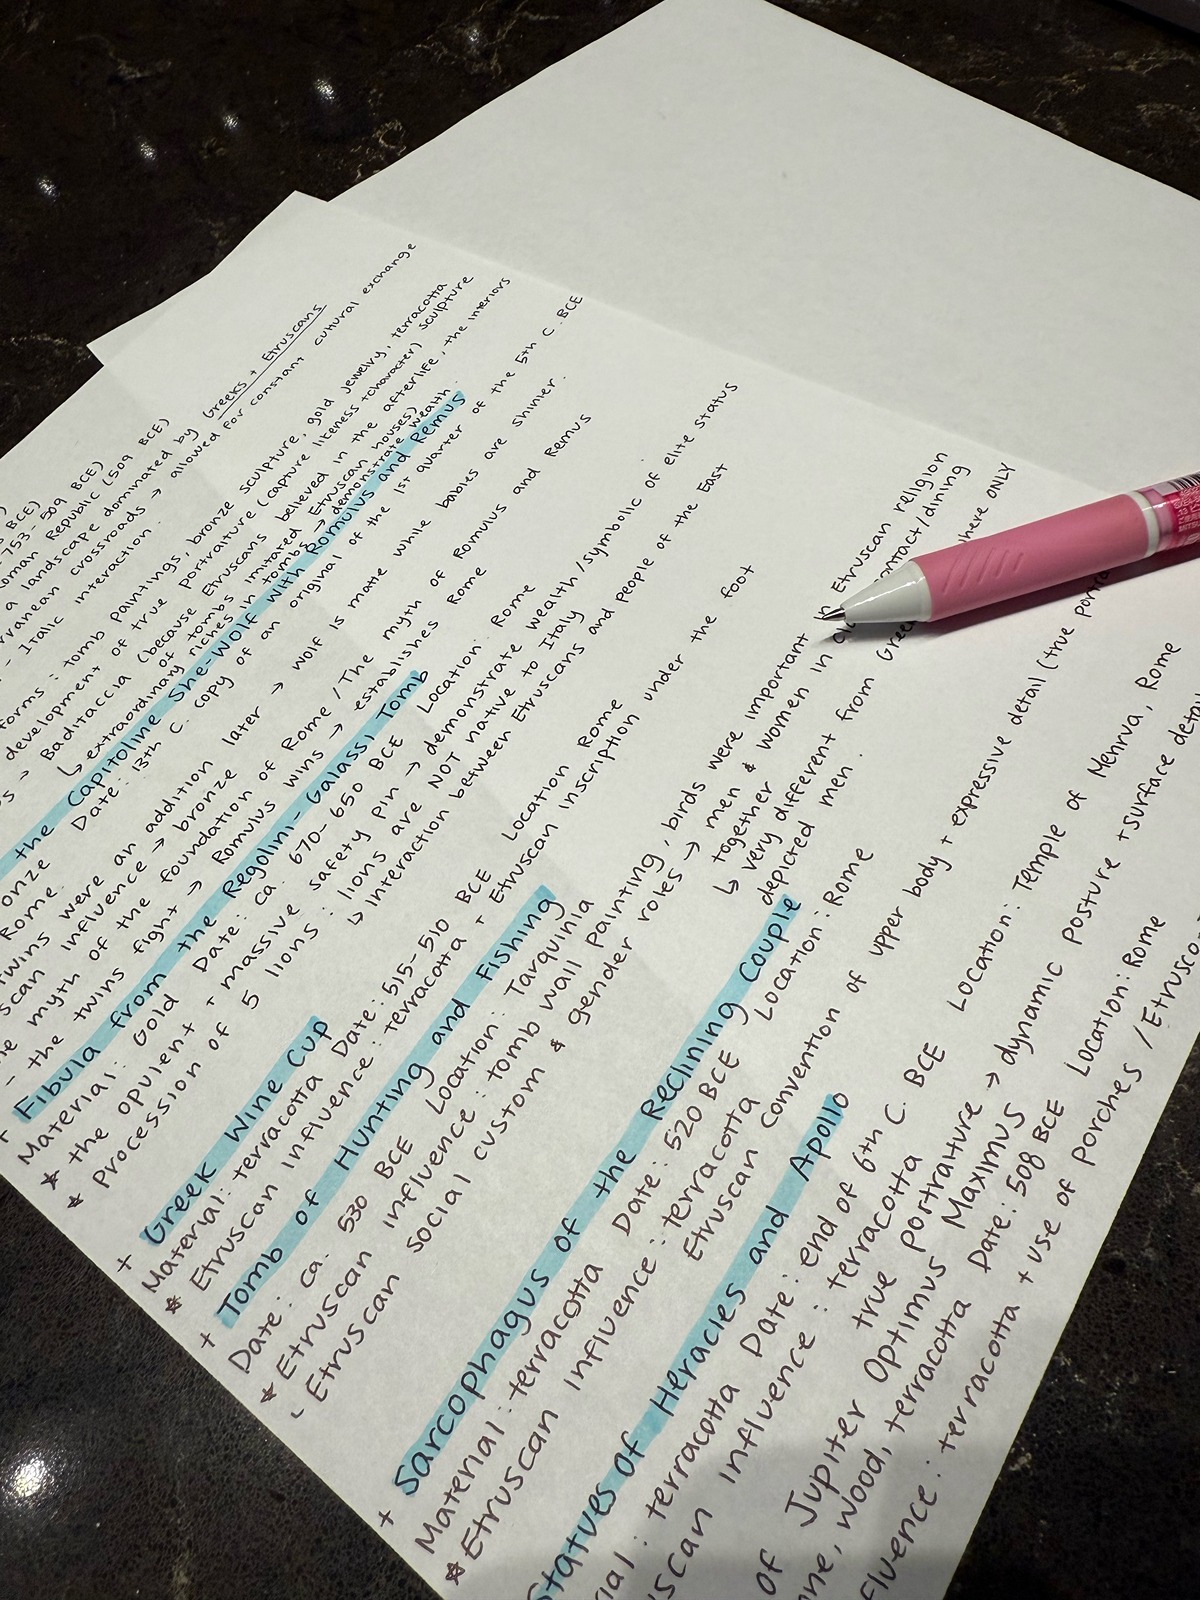 BCE)
753-509 BCE)
Roman Republic (509 BCE)
a landscape dominated by Greeks + Etruscans
crossroads → allowed for constant cultural exchange
- Italic interaction.
forms: tomb paintings, bronze sculpture, gold jewelry, terracotta
development of true portraiture (capture likeness + character) sculpture
→ Baditaccia (because Etruscans believed in the afterlife, the interiors
of tombs imitated Etruscan houses)
↳ extraordinary riches in tombs → demonstrate wealth.
the Capitoline She-Wolf with Romulus and Remus
Date: 13th C. copy of an original of the 1st quarter of the 5th C. BCE
Rome.
twins were an addition later → wolf is matte while babies are shinier.
influence → bronze
myth of the foundation of Rome / The myth of Romulus and Remus
- the twins fight → Romulus wins → establishes Rome
+ Fibula from the Regolini-Galassi Tomb
Material: Gold Date: ca. 670-650 BCE Location: Rome
☆ the opulent + massive safety pin → demonstrate wealth / symbolic of elite status
☆ Procession of 5 lions: lions are NOT native to Italy
↳ Interaction between Etruscans and people of the East
+ Greek Wine Cup
Material: terracotta Date: 515-510 BCE Location Rome
☆ Etruscan influence: terracotta + Etruscan inscription under the foot
+ Tomb of Hunting and Fishing
Date: ca. 530 BCE Location: Tarquinia
☆ Etruscan influence: tomb wall painting, birds were important in Etruscan religion
- Etruscan social custom & gender roles → men & women in contact/dining
together
↳ very different from Greek where ONLY
depicted men.
+ Sarcophagus of the Reclining Couple
Material: terracotta Date: 520 BCE Location: Rome
☆ Etruscan influence: terracotta
Etruscan Convention of upper body + expressive detail (true
Statues of Heracles and Apollo
terracotta Date: end of 6th C. BCE Location: Temple of Menrva, Rome
influence: terracotta
true portraiture → dynamic posture + surface
of Jupiter Optimus Maximus
wood, terracotta Date: 508 BCE Location: Rome
terracotta + use of porches /